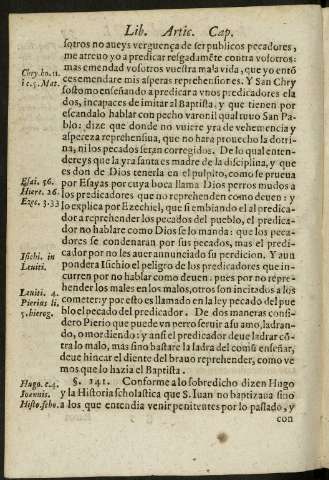 Lib. Artic. Cap.
sotros no aueys verguença de ser publicos pecadores,
me atreuo yo a predicar resgadamẽte contra vosotros:
Chry. ho. 11.
mas emendad vosotros vuestra mala vida, que yo entõ
in c. 3. Mat.
ces emendare mis asperas reprehensiones. Y San Chry
sostomo enseñando a predicar a vnos predicadores ela
dos, incapaces de imitar al Baptista, y que tienen por
escandalo hablar con pecho varonil qual tuuo San Pa-
blo: dize que donde no vuiere yra de vehemencia y
aspereza reprehensiua, que no hara prouecho la dotri-
na, ni los pecados seran corregidos. De lo qual enten-
dereys que la yra santa es madre de la disciplina, y que
Esai. 56.
es don de Dios tenerla en el pulpito, como se prueua
Hiere. 26.
por Esayas por cuya boca llama Dios perros mudos a
Eze. 3. 33
los predicadores que no reprehenden como deuen: y
lo explica por Ezechiel, que si embiando el al predica-
dor a reprehender los pecados del pueblo, el predica-
dor no hablare como Dios se lo manda: que los peca-
dores se condenaran por sus pecados, mas el predi-
Isichi. in
cador por no les auer annunciado su perdicion. Y aun
Leuiti.
pondera Isichio el peligro de los predicadores que in-
curren por no hablar como deuen: pues por no repre-
hender los males en los malos, otros son incitados a los
Leuiti. 4.
cometer: y por esto es llamado en la ley pecado del pue
Pierius li.
blo el pecado del predicador. De dos maneras consi-
5. hierog.
dero Pierio que puede vn perro seruir a su amo, ladran-
do, o mordiendo: y ansi el predicador deue ladrar cõ-
tra lo malo, mas sino bastare la ladra del comũ enseñar,
deue hincar el diente del brauo reprehender, como ve
mos que lo hazia el Baptista.
Hugo. c. 4.
§. 141. Conforme a lo sobredicho dizen Hugo
Ioannis.
y la Historia scholastica que S. Iuan no baptizaua sino
Histo. scho.
a los que entendia venir penitentes por lo passado, y
con